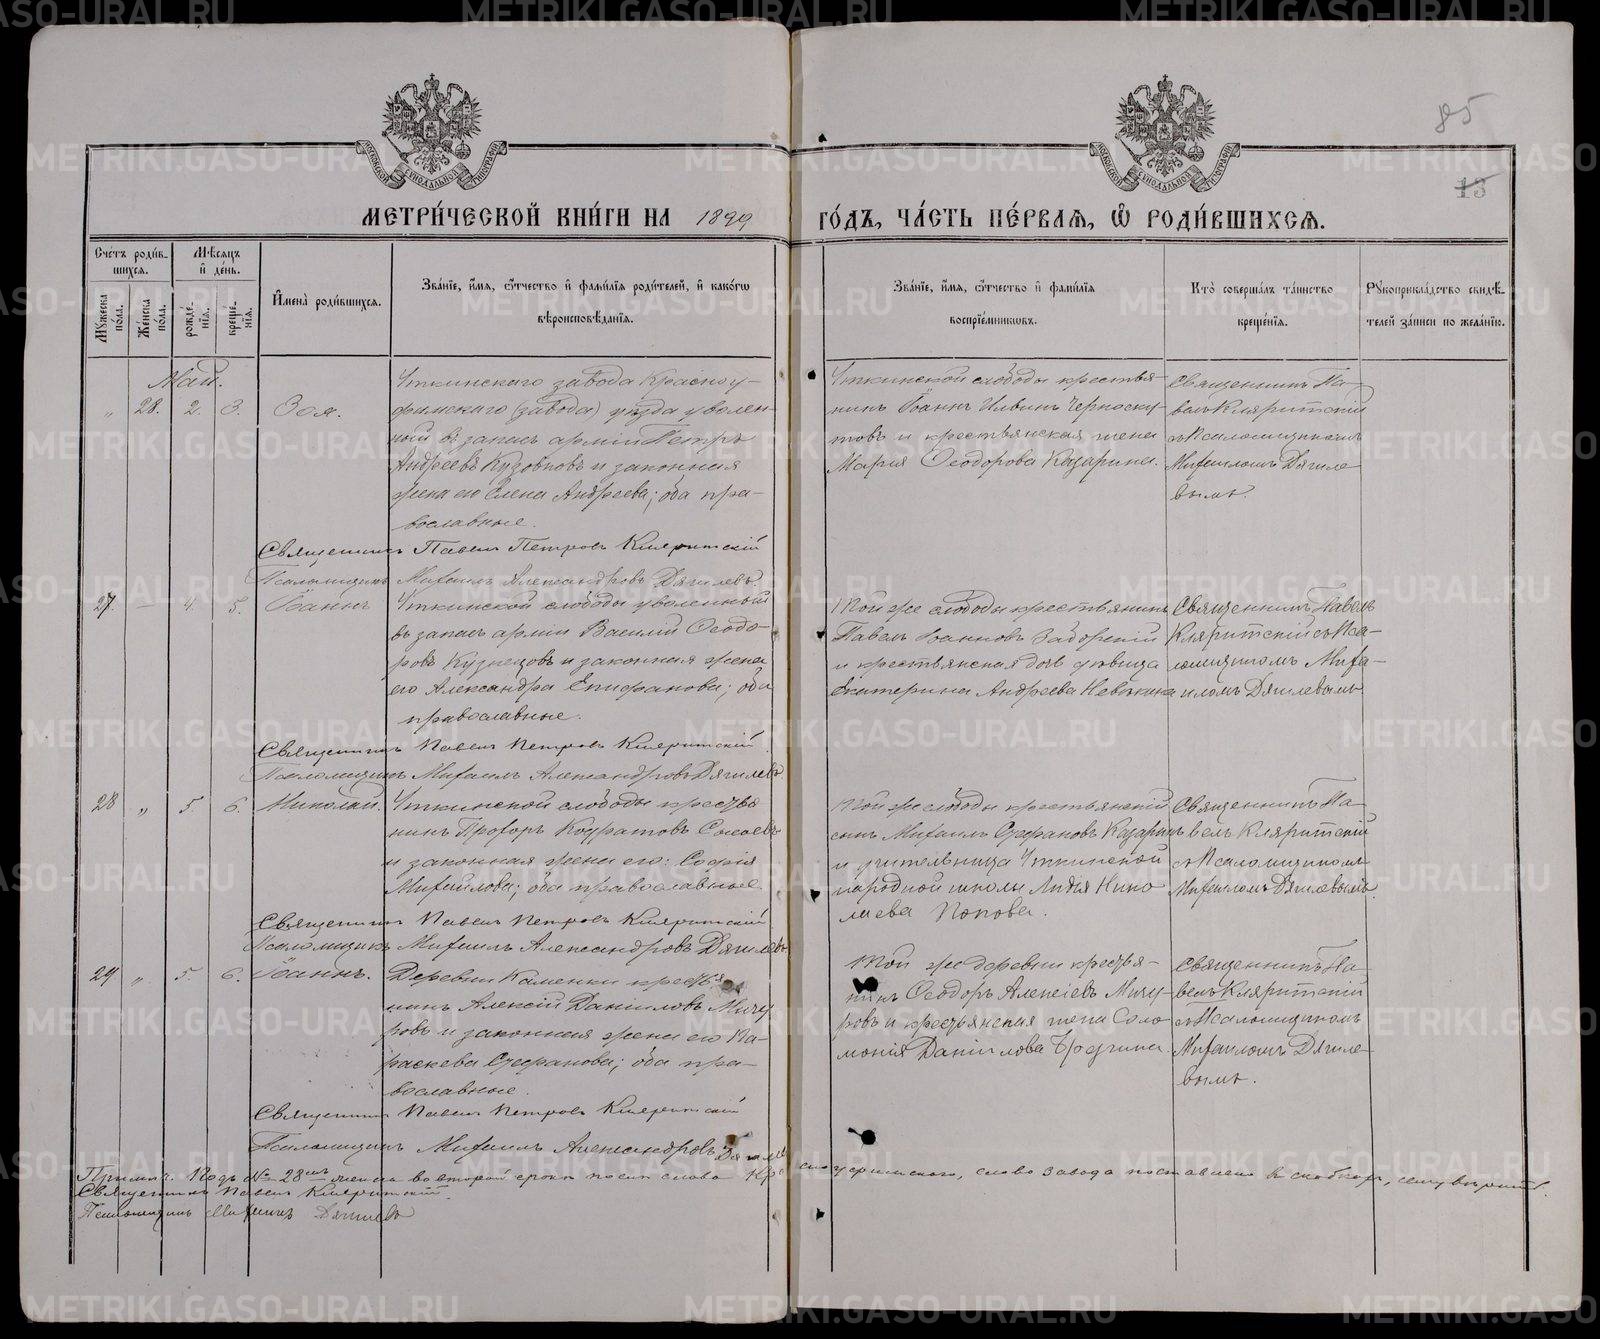 85
13
МОСКОВСКОЙ СѴНОДАЛЬНОЙ ТИПОГРАФІИ
МОСКОВСКОЙ СѴНОДАЛЬНОЙ ТИПОГРАФІИ
МЕТРИ́ЧЕСКОЙ КНИ́ГИ НА 1899 ГО́ДЪ, ЧА́СТЬ ПЕ́РВАѦ, Ѡ҆ РОДИ́ВШИХСѦ.
Сче́тъ роди́в-
шихся.
Мѣ́сяцъ
и҆ де́нь.
Мꙋ́жеска
по́ла.
Же́нска
по́ла.
рожде́-
нїя.
креще́-
нїя.
И҆мена̀ роди́вшихся.
Зва́нїе, и҆́мя, ѻ҆́тчество и҆ фами́лїя роди́телей, и҆ како́гѡ
вѣроисповѣ́данїя.
Зва́нїе, и҆́мя, ѻ҆́тчество и҆ фами́лїя
воспрїе́мникѡвъ.
Кто̀ соверша́лъ та́инство
креще́нїя.
Рꙋкоприкла́дство свидѣ́-
телей за́писи по жела́нїю.
Май.
„ 28. 2. 3. Зоя.
Уткинскаго завода Красноу-
фимскаго (завода) уѣзда уволен-
ный въ запасъ арміи Петръ
Андреевъ Кузовковъ и законная
жена его Елена Андреева; оба пра-
вославные.
Уткинской слободы крестья-
нинъ Іоаннъ Ильинъ Черноску-
товъ и крестьянская жена
Марія Ѳеодорова Казарина.
Священникъ Па-
велъ Кляритскій
съ Псаломщикомъ
Михаиломъ Дягиле-
вымъ.
Священникъ Павелъ Петровъ Кляритскій
Псаломщикъ Михаилъ Александровъ Дягилевъ.
27. — 4. 5. Іоаннъ
Уткинской слободы уволенный
въ запасъ арміи Василій Ѳеодо-
ровъ Кузнецовъ и законная жена
его Александра Епифанова; оба
православные.
Той же слободы крестьянинъ
Павелъ Іоанновъ Задорскій
и крестьянская дочь дѣвица
Екатерина Андреева
Священникъ Павелъ
Кляритскій съ Пса-
ломщикомъ Миха-
иломъ Дягилевымъ
Священникъ Павелъ Петровъ Кляритскій
Псаломщикъ Михаилъ Александровъ Дягилевъ
28 „ 5. 6. Николай.
Уткинской слободы крестья-
нинъ Прохоръ Кодратовъ
и законная жена его: Софія
Михайлова; оба православные.
Той же слободы крестьянскій
сынъ Михаилъ Стефановъ Казаринъ
и учительница Уткинской
народной школы Лидія Нико-
лаева Попова.
Священникъ Па-
велъ Кляритскій
съ Псаломщикомъ
Михаиломъ Дягилевымъ.
Священникъ Павелъ Петровъ Кляритскій
Псаломщикъ Михаилъ Александровъ Дягилевъ
29 „ 5. 6. Іоаннъ.
Деревни Каменки крестья-
нинъ Алексій Даніиловъ Мичу-
ровъ и законная жена его Па-
раскева Стефанова; оба пра-
вославные.
Той же деревни крестья-
нинъ Ѳеодоръ Алексіевъ Мичу-
ровъ и крестьянская жена Соло-
монія Даніилова
Священникъ Па-
велъ Кляритскій
съ Псаломщикомъ
Михаиломъ Дягиле-
вымъ.
Священникъ Павелъ Петровъ Кляритскій
Псаломщикъ Михаилъ Александровъ Дягилевъ
Примѣч. Подъ № 28мъ женска во второй строкѣ послѣ слова Красноуфимскаго, слово завода поставлено въ скобкахъ, сему вѣрить.
Священникъ Павелъ Кляритскій.
Псаломщикъ Михаилъ Дягилевъ